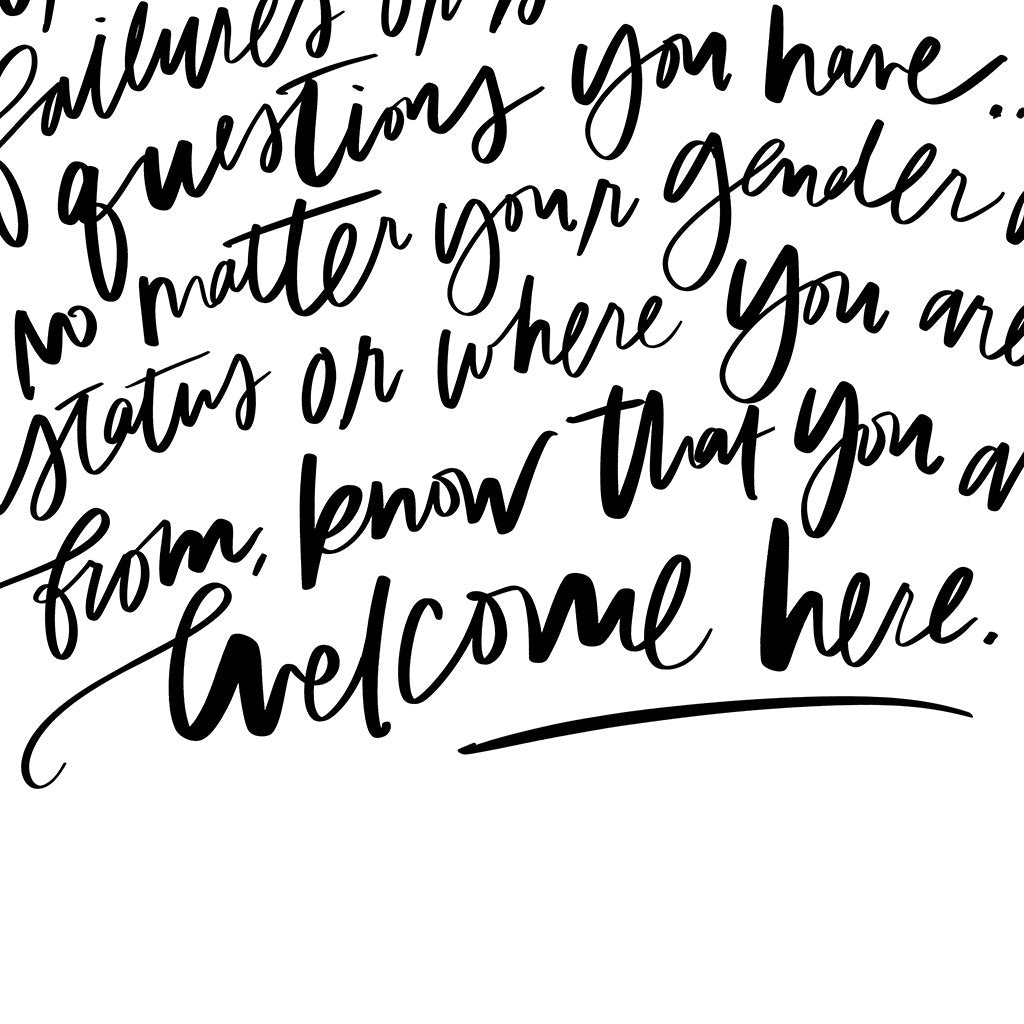 failures or
questions you have..
no matter your gender
status or where you are
from, know that you a
welcome here.